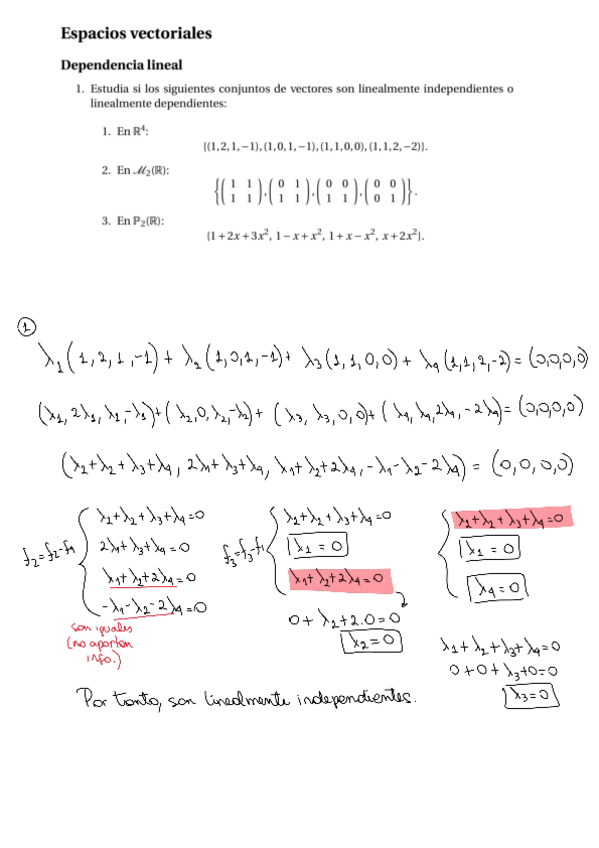 Espacios vectoriales
Dependencia lineal
1. Estudia si los siguientes conjuntos de vectores son linealmente independientes o
linealmente dependientes:
1. En ℝ⁴:
{(1,2,1,−1),(1,0,1,−1),(1,1,0,0),(1,1,2,−2)}.
2. En ℳ₂(ℝ):
{( 1 1 ; 1 1 ),( 0 1 ; 1 1 ),( 0 0 ; 1 1 ),( 0 0 ; 0 1 )}.
3. En ℙ₂(ℝ):
{1+2x+3x², 1−x+x², 1+x−x², x+2x²}.
①
λ₁(1,2,1,-1) + λ₂(1,0,1,-1) + λ₃(1,1,0,0) + λ₄(1,1,2,-2) = (0,0,0,0)
(λ₁,2λ₁,λ₁,-λ₁)+(λ₂,0,λ₂,-λ₂)+(λ₃,λ₃,0,0)+(λ₄,λ₄,2λ₄,-2λ₄)=(0,0,0,0)
(λ₁+λ₂+λ₃+λ₄, 2λ₁+λ₃+λ₄, λ₁+λ₂+2λ₄, -λ₁-λ₂-2λ₄) = (0,0,0,0)
f₂=f₂-f₁
λ₁+λ₂+λ₃+λ₄=0
2λ₁+λ₃+λ₄=0
λ₁+λ₂+2λ₄=0
-λ₁-λ₂-2λ₄=0
son iguales
(no aportan
info.)
f₃=f₃-f₁
λ₁+λ₂+λ₃+λ₄=0
λ₁=0
λ₁+λ₂+2λ₄=0
0+λ₂+2.0=0
λ₂=0
λ₁+λ₂+λ₃+λ₄=0
λ₁=0
λ₄=0
λ₁+λ₂+λ₃+λ₄=0
0+0+λ₃+0=0
λ₃=0
Por tanto, son linealmente independientes.